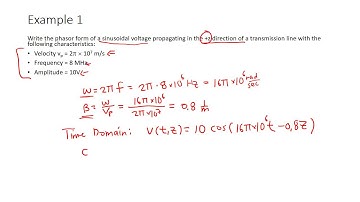 Example 1
Write the phasor form of a sinusoidal voltage propagating in the +z direction of a transmission line with the
following characteristics:
• Velocity vₚ = 2π × 10⁷ m/s
• Frequency = 8 MHz
• Amplitude = 10V
ω = 2πf = 2π·8×10⁶ Hz = 16π×10⁶ rad/sec
β = ω/vₚ = 16π×10⁶/2π×10⁷ = 0,8 1/m
Time Domain: V(t,z) = 10 cos(16π×10⁶t − 0,8z)
C